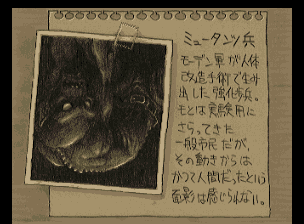 ミュータンツ兵
モーデン軍が人体
改造手術で生み
出した強化兵。
もとは実験用に
さらってきた
一般市民だが、
その動きからは
かつて人間だったという
面影は感じられない。